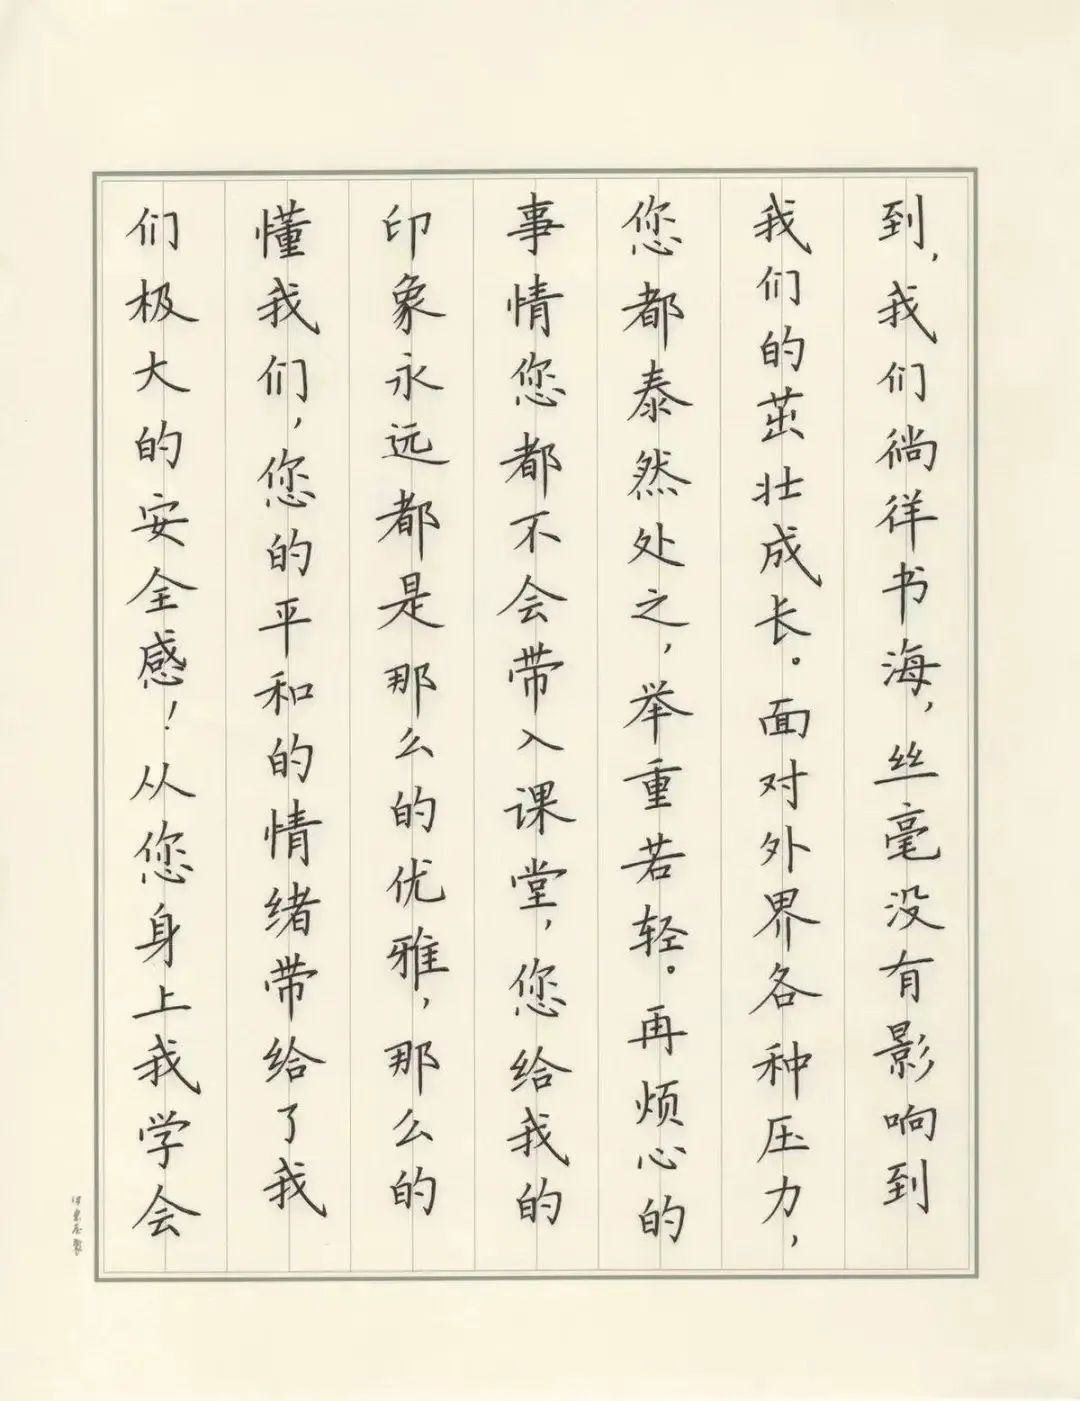 到,我们徜徉书海,丝毫没有影响到
我们的茁壮成长。面对外界各种压力,
您都泰然处之,举重若轻。再烦心的
事情您都不会带入课堂,您给我的
印象永远都是那么的优雅,那么的
懂我们,您的平和的情绪带给了我
们极大的安全感!从您身上我学会